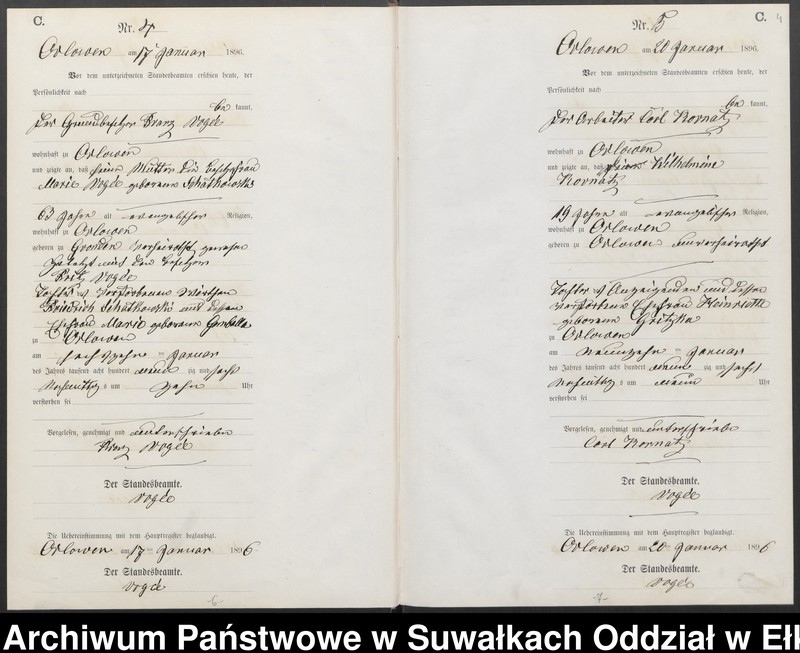 C.
Nr. 4
Orlowen am 17 Januar 1896.
Vor dem unterzeichneten Standesbeamten erschien heute, der
Persönlichkeit nach
be kannt,
der Grundbesitzer Franz Vogée
wohnhaft zu Orlowen
und zeigte an, daß seine Mutter die Besitzerfrau
Marie Vogée geborene Schatkowski
63 Jahre alt evangelischer Religion,
wohnhaft zu Orlowen
geboren zu verheirathet gewesen
zuletzt mit dem Besitzer
Fritz Vogée
Tochter d verstorbenen Wirthen
Friedrich Schatkowski und dessen
Ehefrau Marie geborene
zu Orlowen
am sechszehn ten Januar
des Jahres tausend acht hundert neun zig und sechs
Vormittags um zehn Uhr
verstorben sei
Vorgelesen, genehmigt und unterschrieben
Franz Vogée
Der Standesbeamte.
Vogée
Die Uebereinstimmung mit dem Hauptregister beglaubigt.
Orlowen am 17 ten Januar 1896
Der Standesbeamte.
Vogée
-6-
C. 4
Nr. 5
Orlowen am 20 Januar 1896.
Vor dem unterzeichneten Standesbeamten erschien heute, der
Persönlichkeit nach
be kannt,
der Arbeiter Carl Kornatz
wohnhaft zu Orlowen
und zeigte an, daß seine Wilhelmine
Kornatz
19 Jahre alt evangelischer Religion,
wohnhaft zu Orlowen
geboren zu Orlowen unverheirathet
Tochter d Anzeigenden und dessen
verstorbene Ehefrau Heinriette
geborene Gritzka
zu Orlowen
am neunzehn ten Januar
des Jahres tausend acht hundert neun zig und sechs
Nachmittag s um neun Uhr
verstorben sei
Vorgelesen, genehmigt und unterschrieben
Carl Kornatz
Der Standesbeamte.
Vogée
Die Uebereinstimmung mit dem Hauptregister beglaubigt.
Orlowen am 20 ten Januar 1896
Der Standesbeamte.
Vogée
-7-
Archiwum Państwowe w Suwałkach Oddział w Ełk